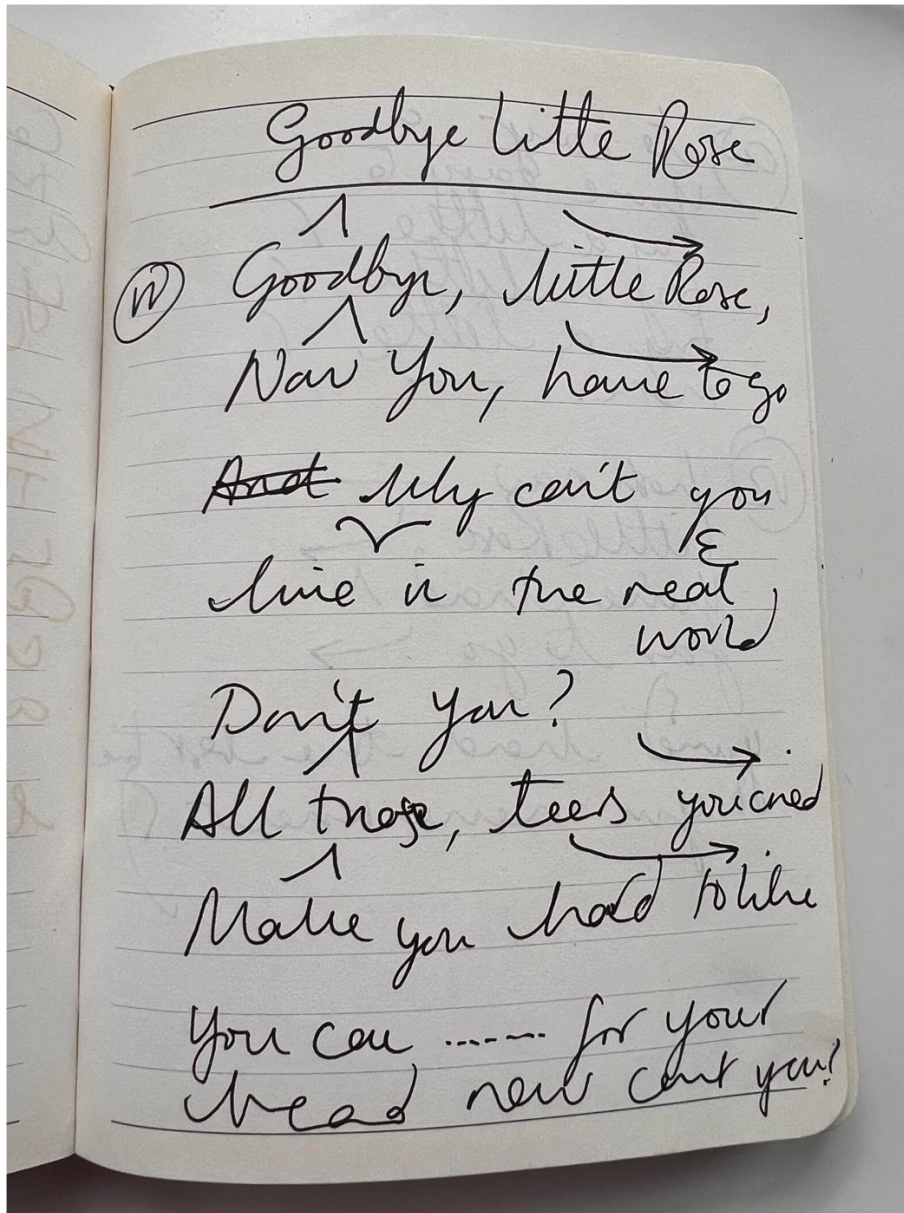 Goodbye Little Rose
V1 Goodbye, little Rose,
Now You, have to go
And Why can't you
live in the real
world
Don't you?
All those, tears you cried
Make you hard to like
You can ------- for your
head now can't you?